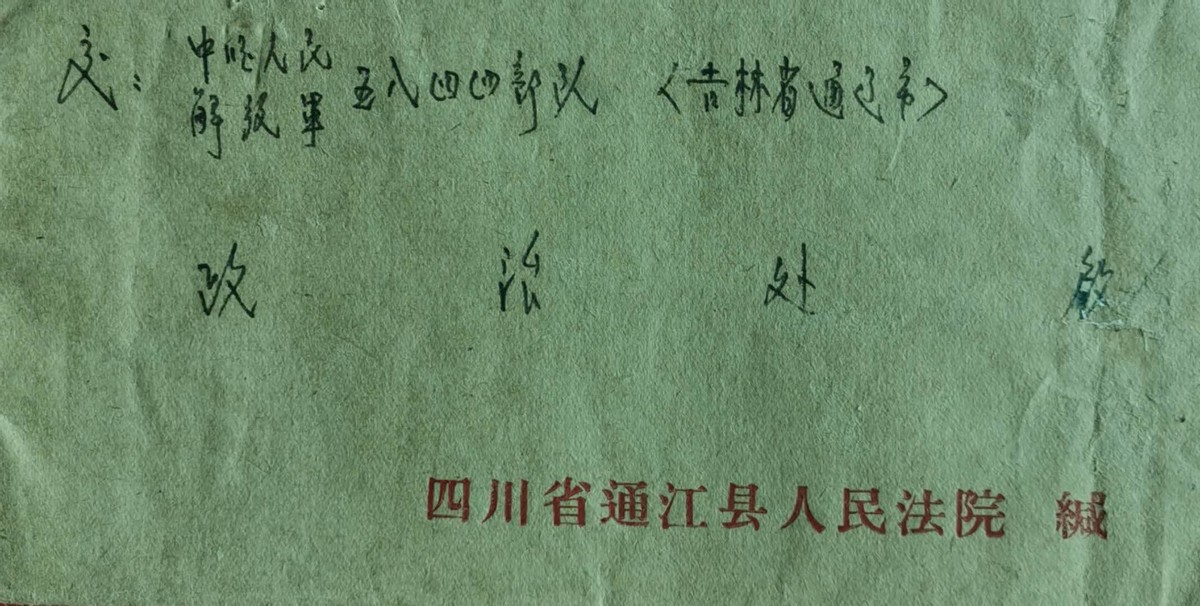 交：中国人民解放军五八四四部队〈吉林省通辽市〉
政治处 啟
四川省通江县人民法院 緘